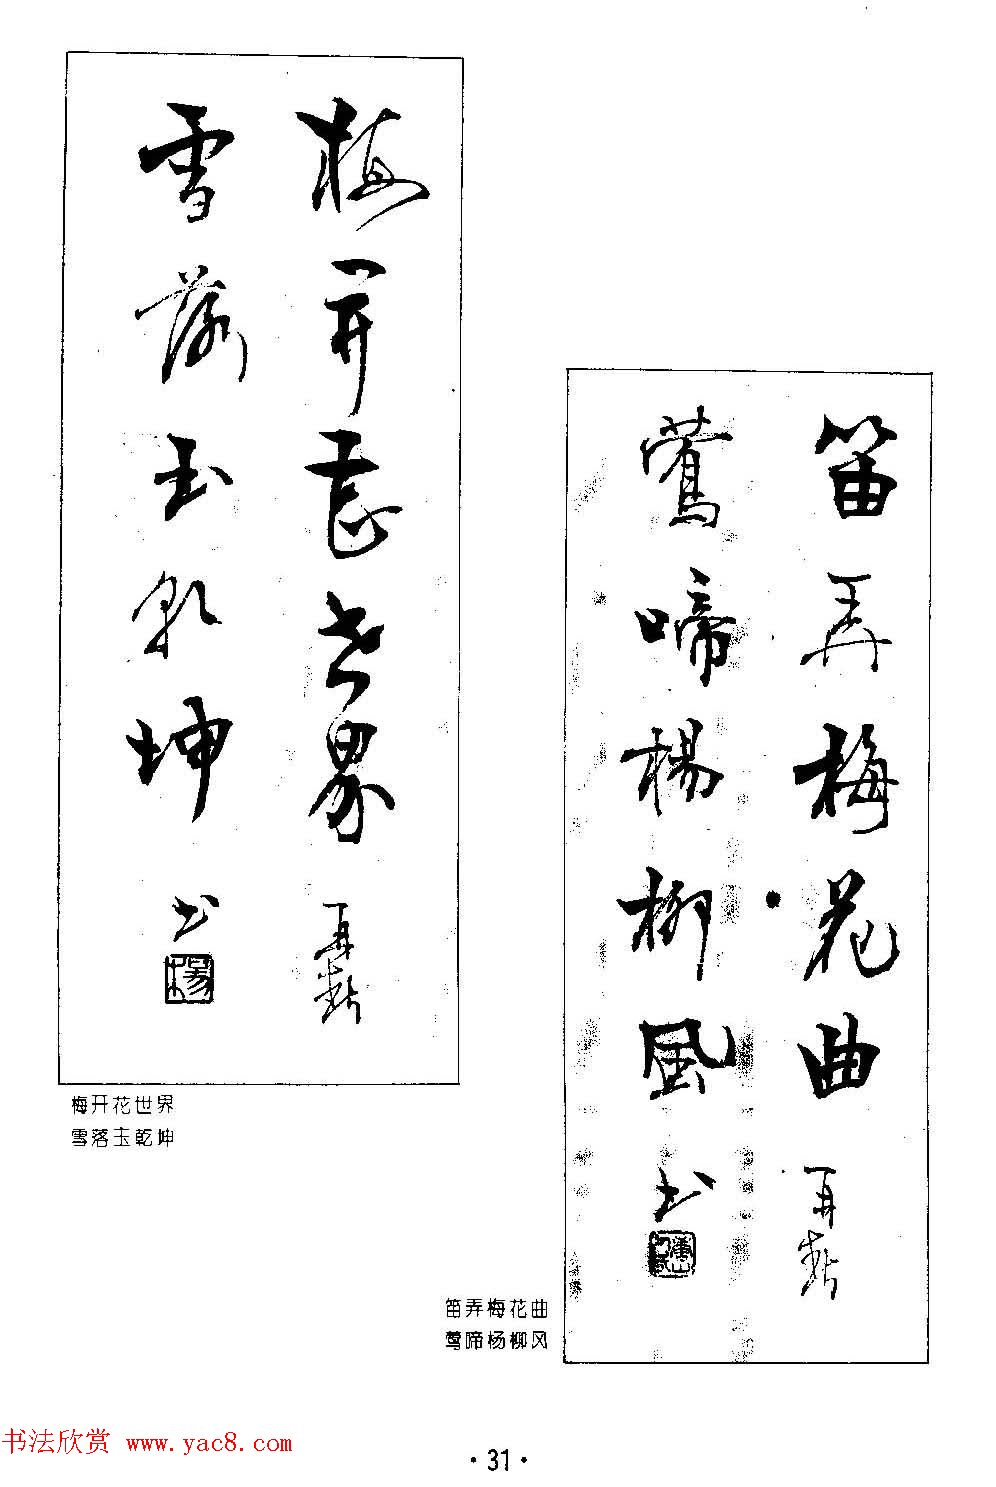 梅開花世界 再
雪落玉乾坤 书
楊
梅开花世界
雪落玉乾坤
笛弄梅花曲 再
鶯啼楊柳風 书
笛弄梅花曲
莺啼杨柳风
书法欣赏 www.yac8.com
·31·